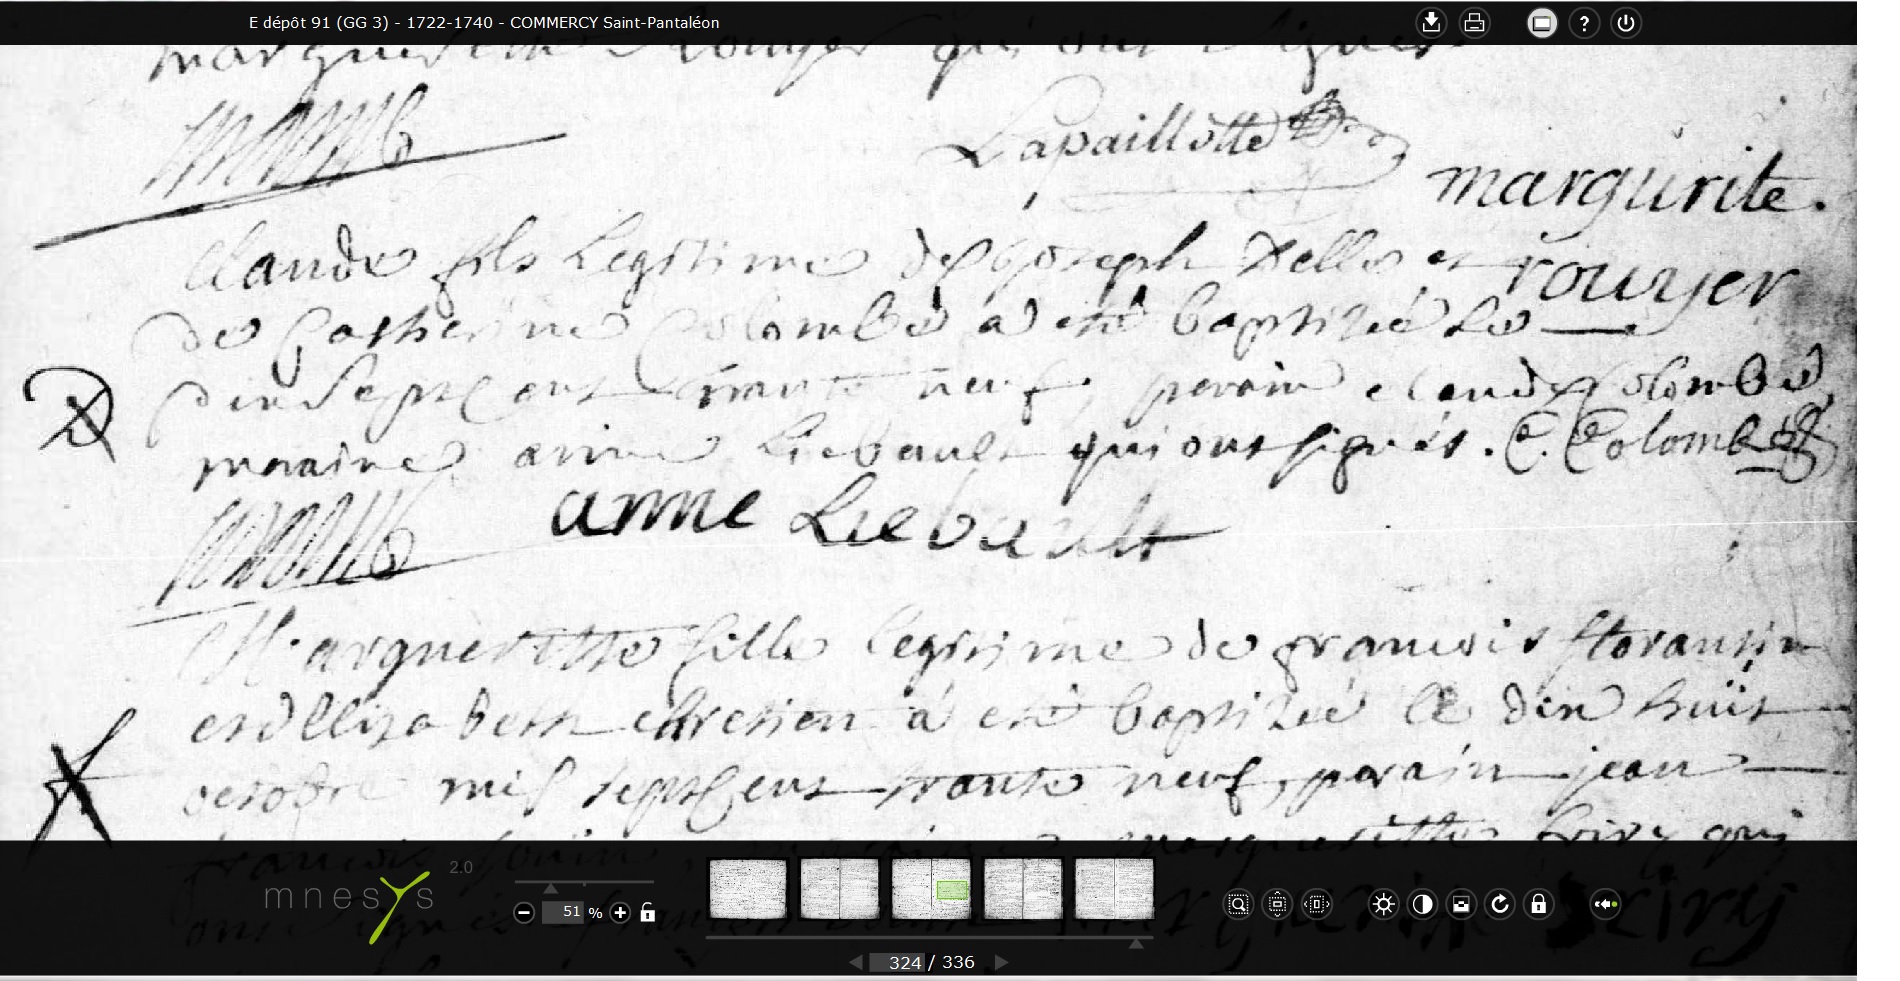 E dépôt 91 (GG 3) - 1722-1740 - COMMERCY Saint-Pantaléon
rouyer qui ont signes
Lapaillotte
margurite.
rouyer
Claude fils Legitime de joseph et
de Catherine Colombé a eté baptizée Le
sept cent trante neuf, parain claude Colombé
maraine anne Liebault qui ont signés. C. Colombé
anne Liebault
Margueritte fille legitime de francois florantin
et d'Elizabeth chretien a eté baptizée le dix huit
octobre mil sept cent trante neuf, parain jean
francois margueritte qui
ont signés
mnesys 2.0
51 %
324 / 336